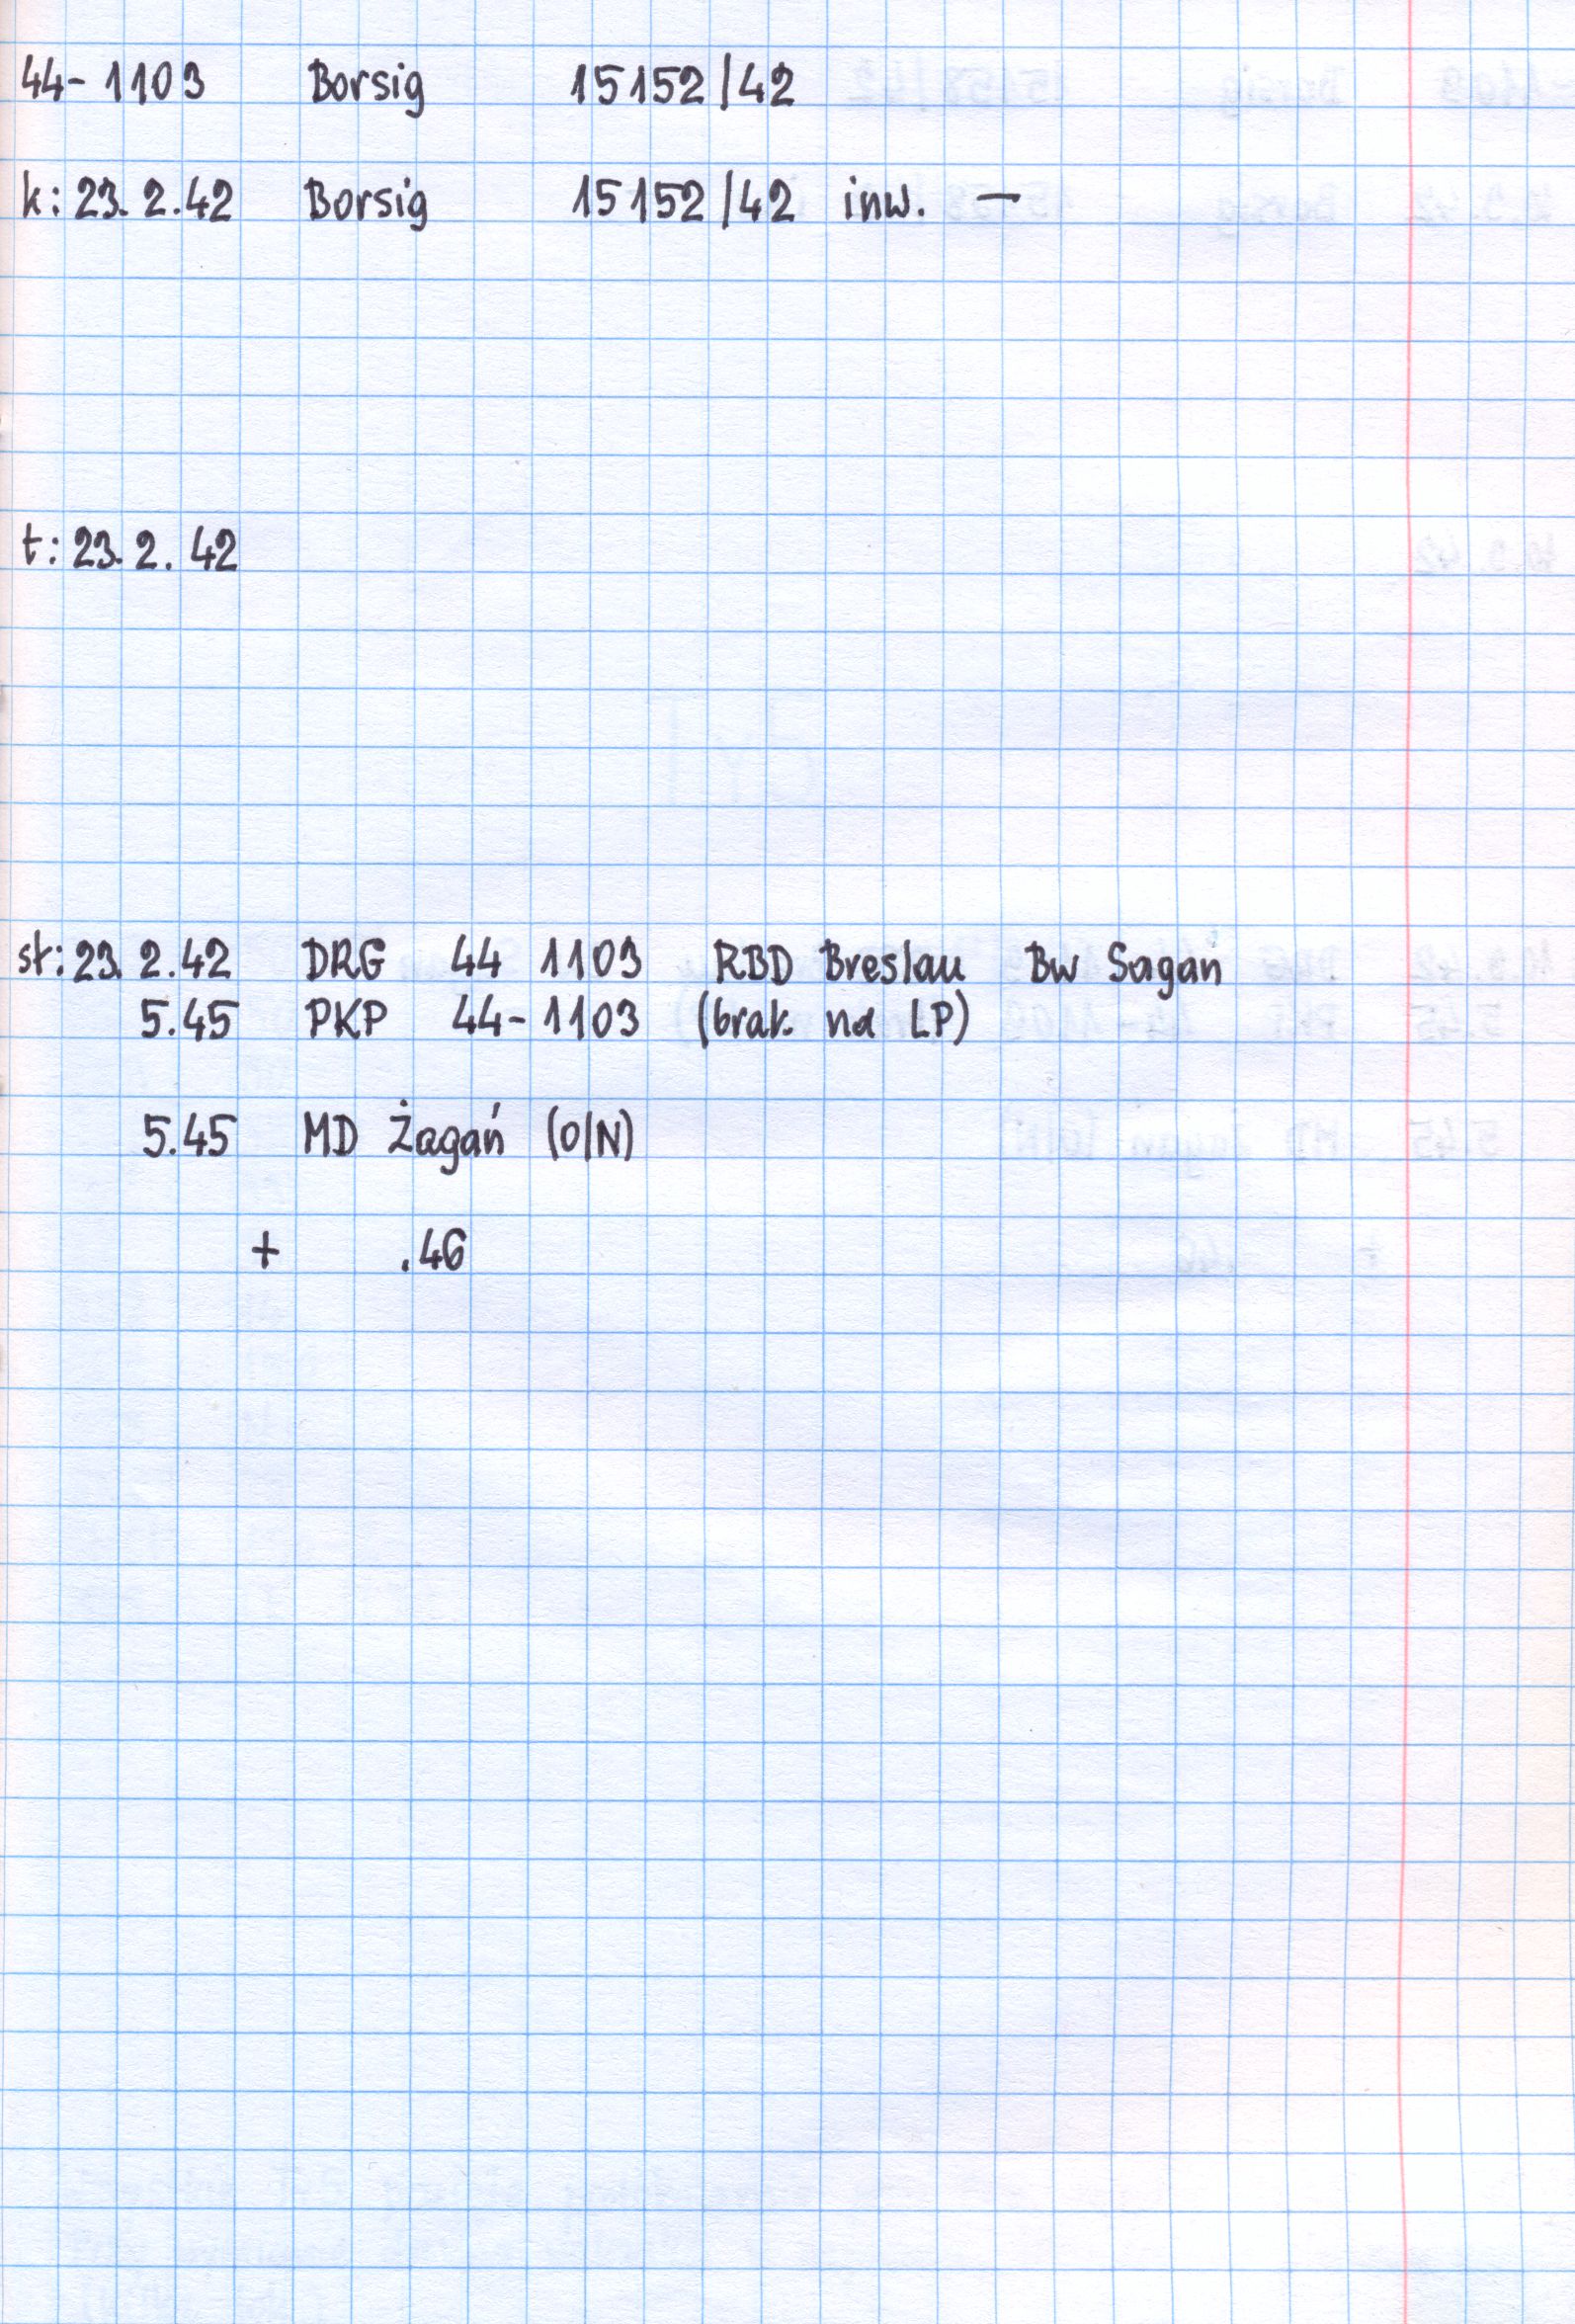 44-1103 Borsig 15152/42
k: 23.2.42 Borsig 15152/42 inw. —
t: 23.2.42
st: 23.2.42 DRG 44 1103 RBD Breslau Bw Sagan
5.45 PKP 44-1103 (brak na LP)
5.45 MD Żagań (O/N)
+ .46